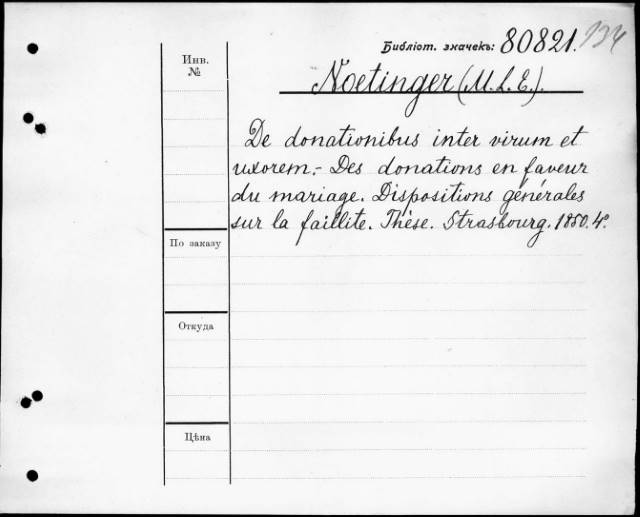 Библіот. значекъ: 80821.
Инв.
№
Noetinger (M. L. E.).
De donationibus inter virum et
uxorem.- Des donations en faveur
du mariage. Dispositions générales
sur la faillite. Thèse. Strasbourg. 1850. 4°.
По заказу
Откуда
Цѣна